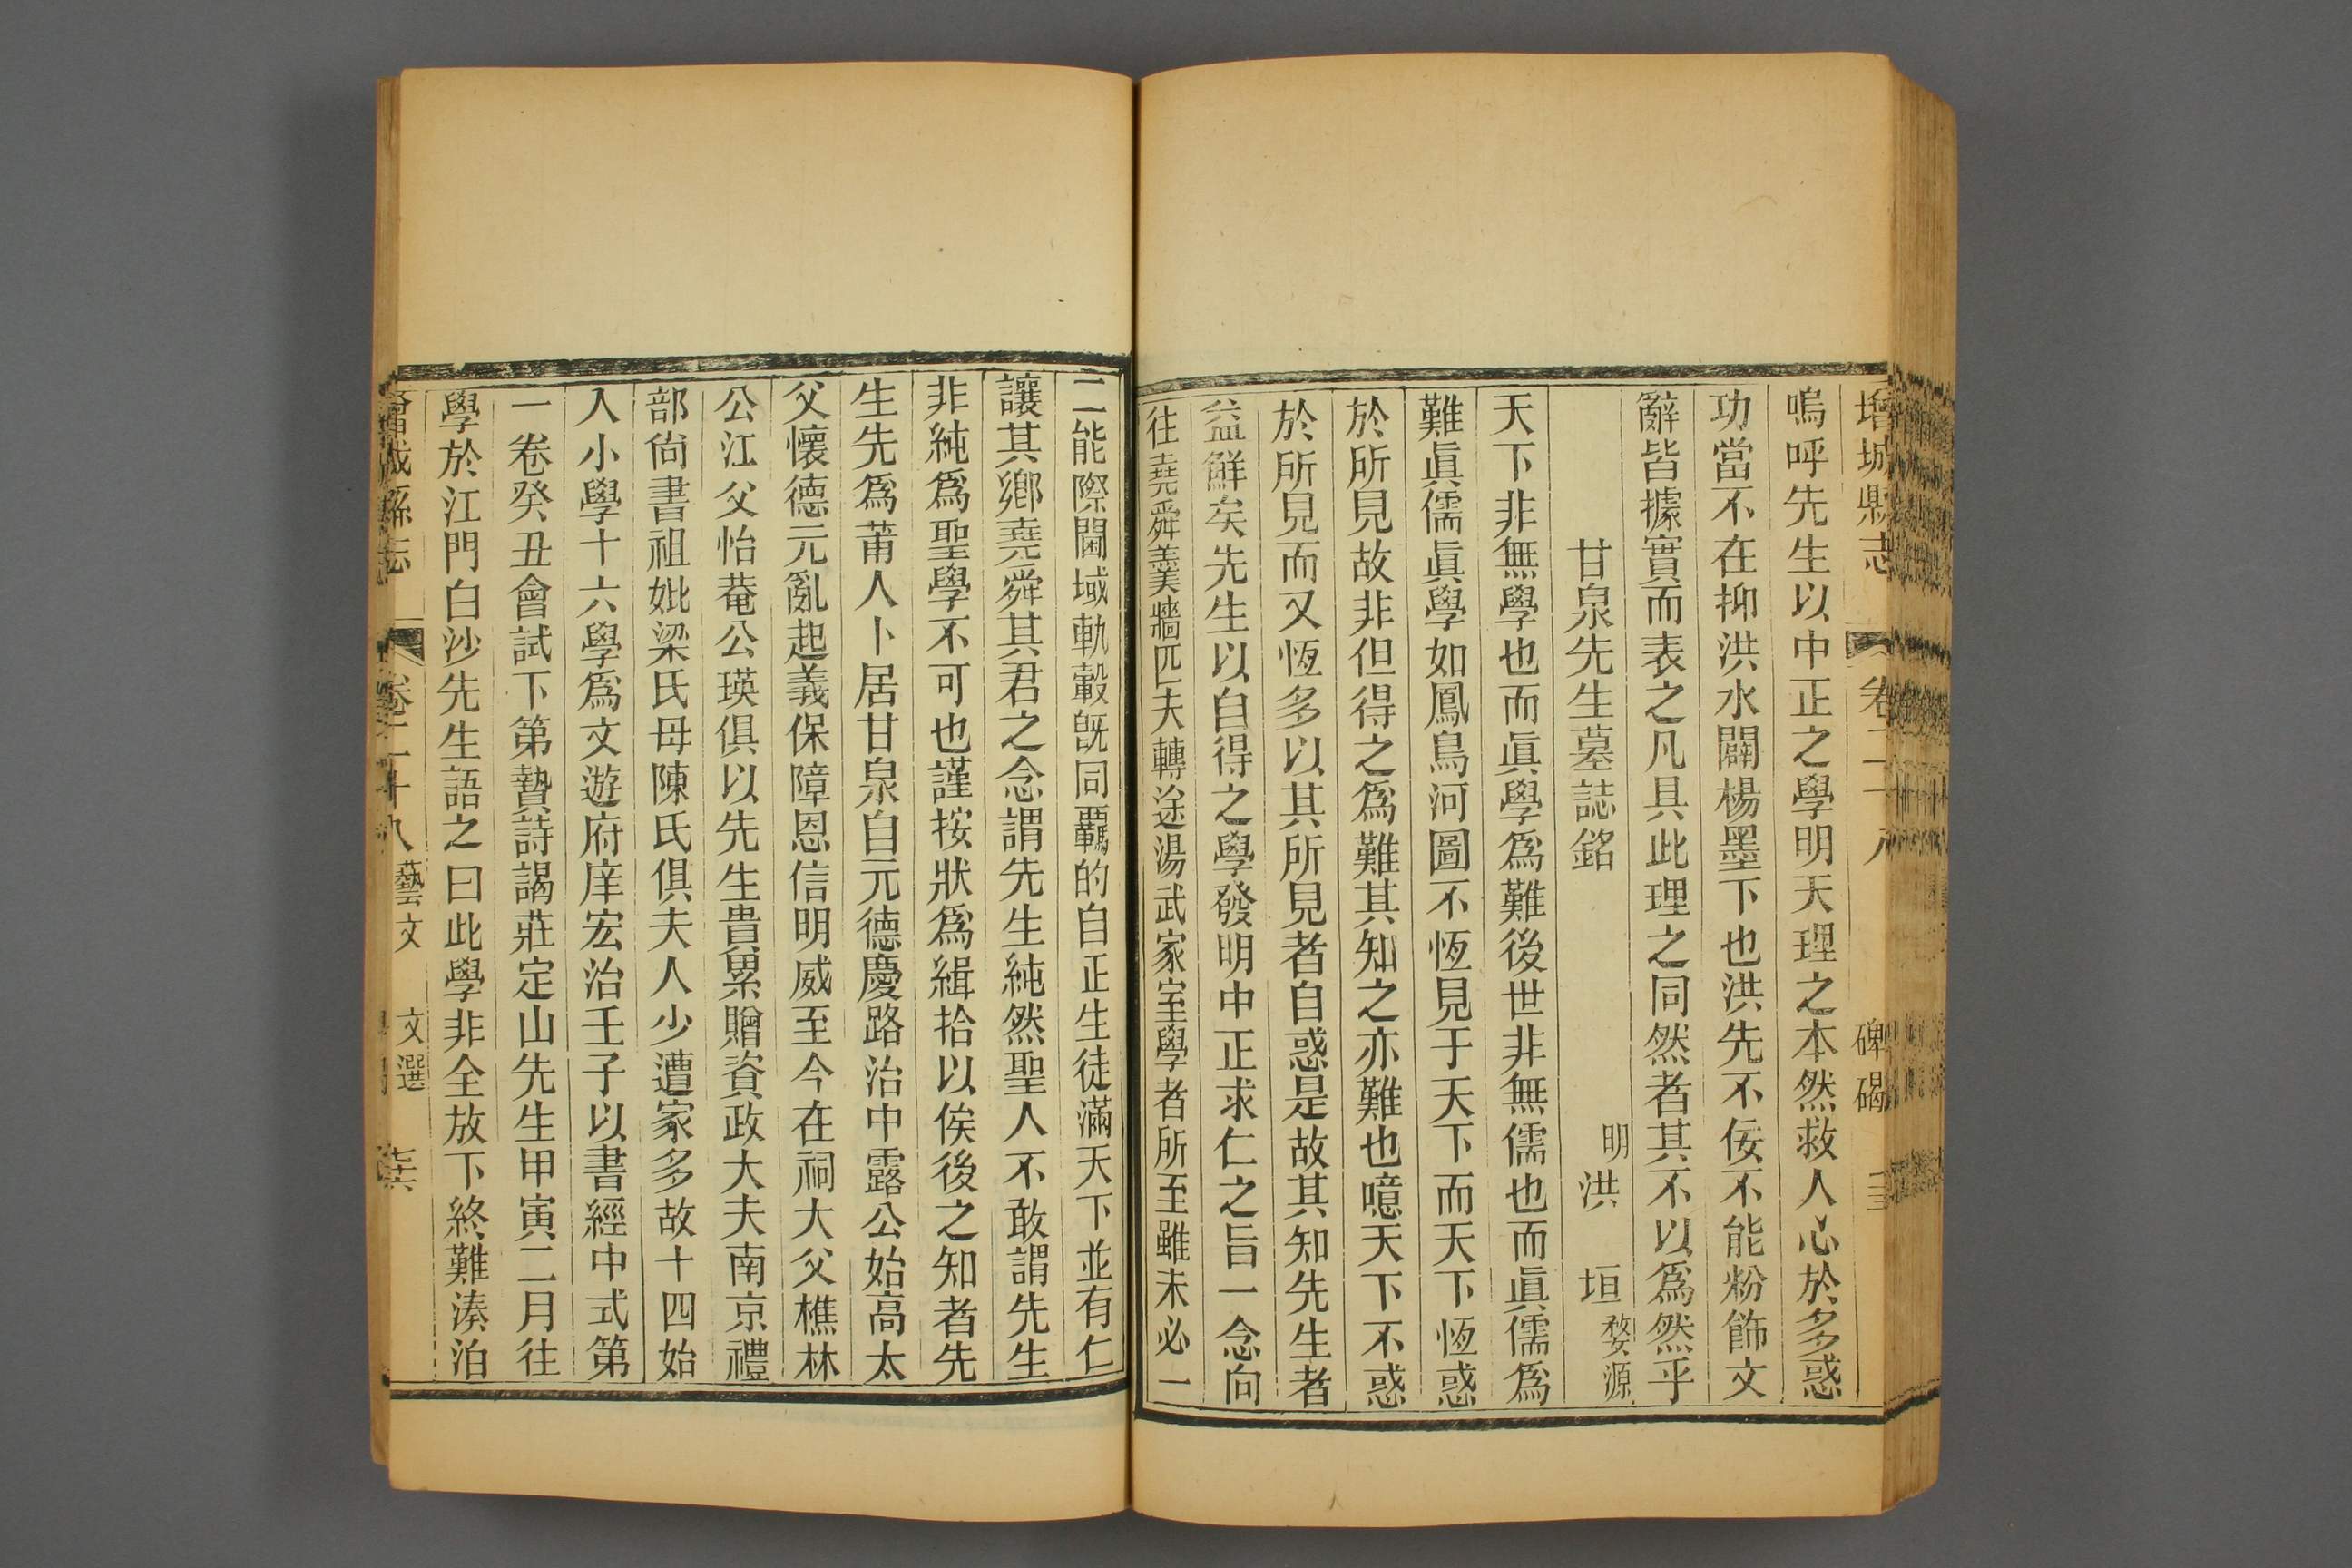 增城縣志 卷二十八 碑碣
嗚呼先生以中正之學明天理之本然救人心於多惑
功當不在抑洪水闢楊墨下也洪先不佞不能粉飾文
辭皆據實而表之凡具此理之同然者其不以爲然乎
甘泉先生墓誌銘 明 洪 垣 婺源
天下非無學也而眞學爲難後世非無儒也而眞儒爲
難眞儒眞學如鳳鳥河圖不恆見于天下而天下恆惑
於所見故非但得之爲難其知之亦難也噫天下不惑
於所見而又恆多以其所見者自惑是故其知先生者
益鮮矣先生以自得之學發明中正求仁之旨一念向
往堯舜羹牆匹夫轉途湯武家室學者所至雖未必一
二能際閫域軌轂旣同覊的自正生徒滿天下並有仁
讓其鄉堯舜其君之念謂先生純然聖人不敢謂先生
非純爲聖學不可也謹按狀爲緝拾以俟後之知者先
生先爲莆人卜居甘泉自元德慶路治中露公始高太
父懷德元亂起義保障恩信明威至今在祠大父樵林
公江父怡菴公瑛俱以先生貴累贈資政大夫南京禮
部尙書祖妣梁氏母陳氏俱夫人少遭家多故十四始
入小學十六學爲文遊府庠宏治壬子以書經中式第
一卷癸丑會試下第贄詩謁莊定山先生甲寅二月往
學於江門白沙先生語之曰此學非全放下終難湊泊
增城縣志 卷二十八 藝文 文選